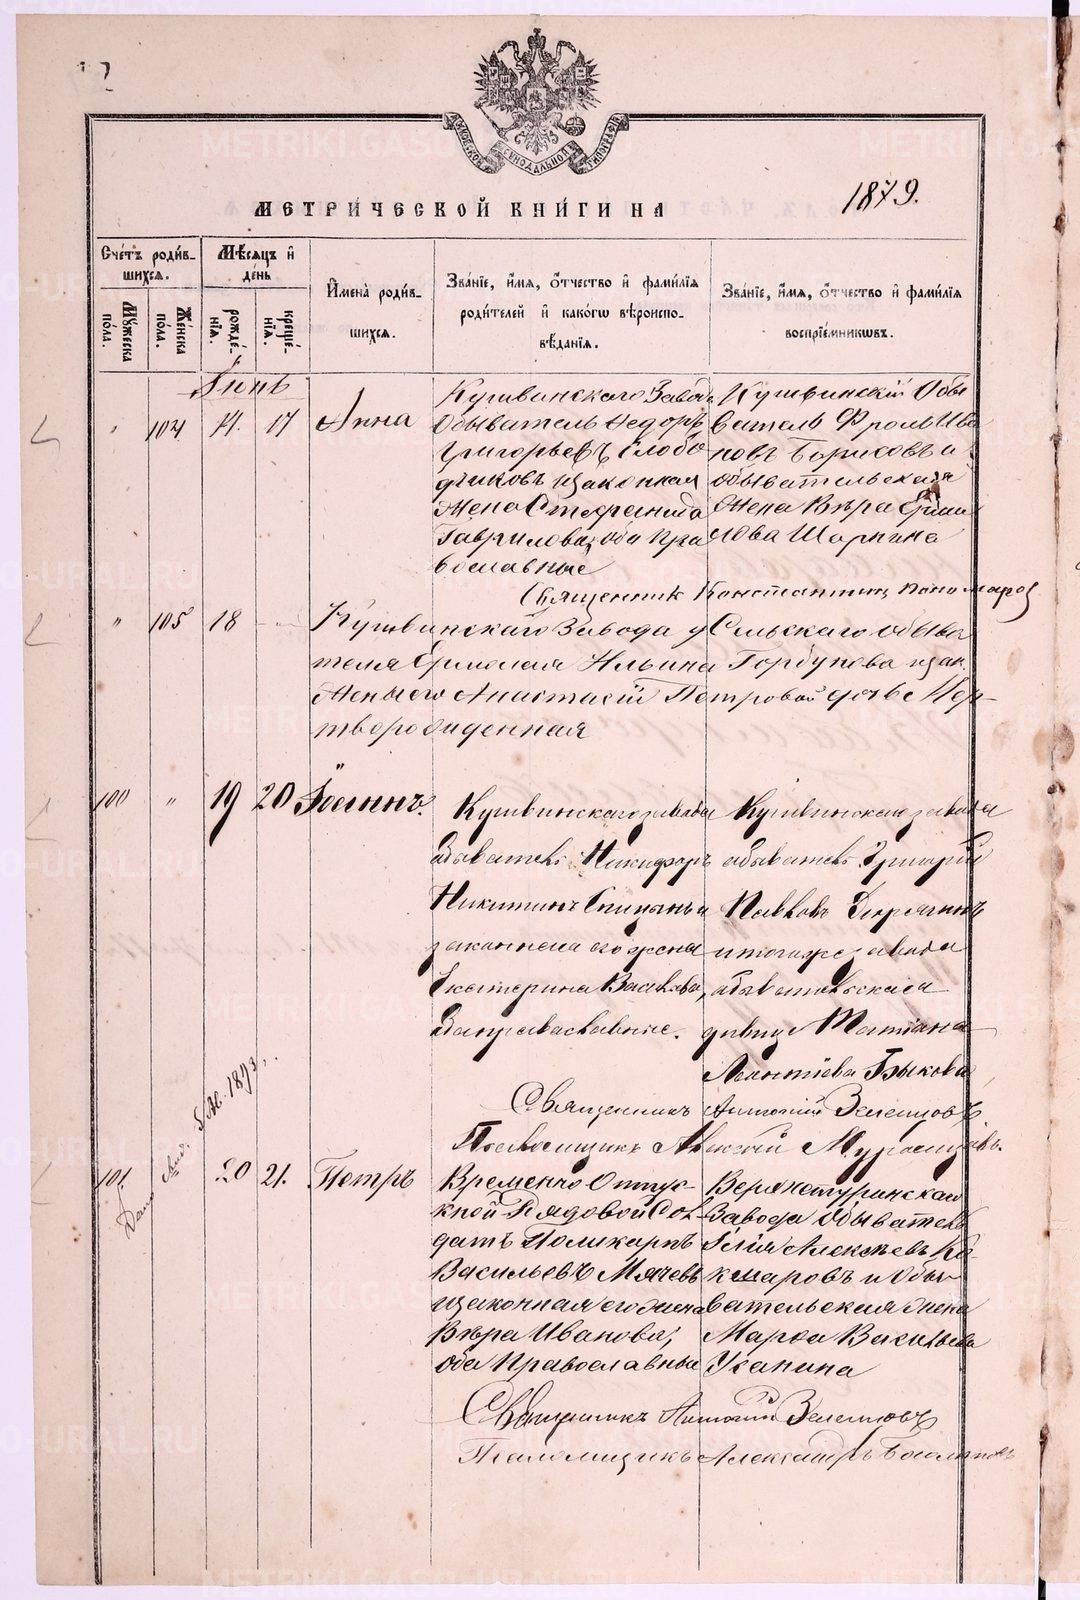 МОСКОВСКОЙ СИНОДАЛЬНОЙ ТИПОГРАФІИ
МЕТРИ́ЧЕСКОЙ КНИ́ГИ НА 1879.
Сче́тъ роди́вшихся.
Мѣ́сяцъ и҆ де́нь
И҆мена̀ роди́вшихся.
Зва́нїе, и҆́мя, ѻ҆́тчество и҆ фами́лїя роди́телей и҆ како́гѡ вѣроисповѣ́данїя.
Зва́нїе, и҆́мя, ѻ҆́тчество и҆ фами́лїя воспрїе́мникѡвъ.
Му́жеска по́ла.
Же́нска по́ла.
рожде́нїя.
креще́нїя.
Іюнь
" 104 17 Анна
Кушвинскаго Завода
Обыватель Ѳедоръ
Григорьевъ Слобо
дчиковъ и законная
Жена Стефанида
Гаврилова, оба пра
вославные
Кушвинскій Обы
ватель Фролъ Ива
новъ Борисовъ и
обывательская
Жена Вѣра
лова
Священник Константин Пономарев
" 105 18 Кушвинскаго Завода у Сельскаго обыва
теля Ермолая Ильина Горбунова и зак.
Жены его Анастасіи Петровой дочь Мер-
творожденная
100 " 19 20 Іоаннъ.
Кушвинскаго завода
обыватель Никифоръ
Никитинъ Спицынъ и
законная его жена
Екатерина
оба православные.
Кушвинскаго завода
обыватель Григорій
Павловъ
и того же завода
обывательская
дѣвица Татіана
Леонтіева Быкова
Священникъ Антоній Зеленцовъ
Псаломщикъ Алексій
101. 20 21. Петръ
1893
Временно Отпус-
кной Рядовой Сол-
датъ Поликарпъ
Васильевъ Мячевъ
и законная его жена
Вѣра Иванова,
оба Православные
Верхнетуринскаго
Завода Обыватель
Илія Алексѣевъ Ко-
кшаровъ и Обы-
вательская жена
Марѳа Васильева
Уханина
Священникъ Антоній Зеленцовъ
Псаломщикъ Александръ
METRIKI.GASO-URAL.RU